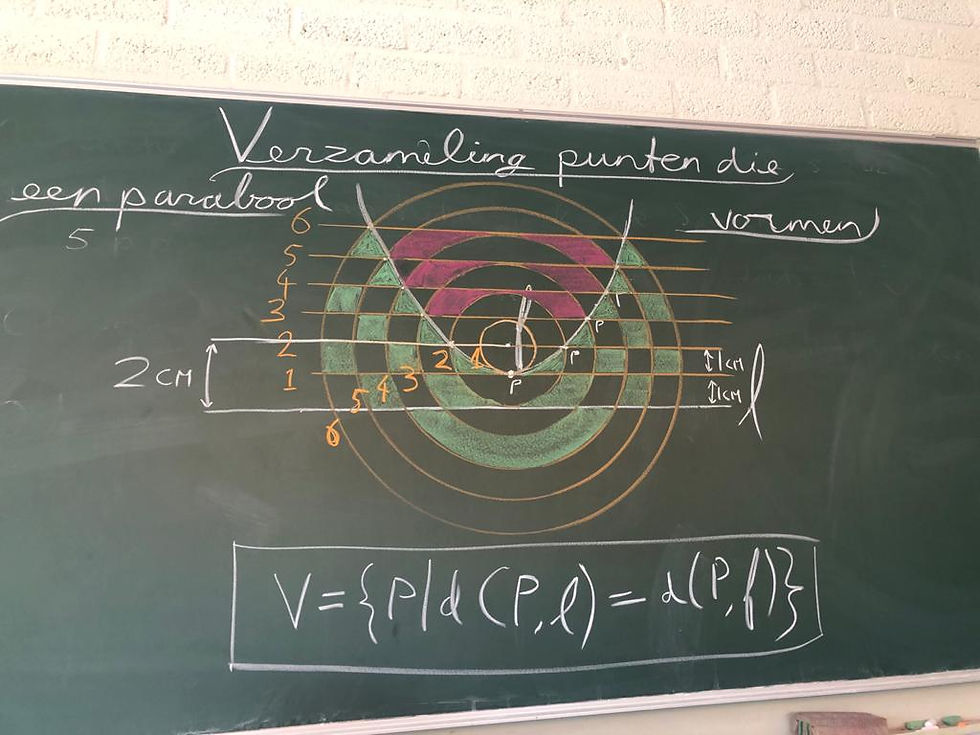 Verzameling punten die
een parabool vormen
6
5
5
4
3
2
1
2 CM
2 1
3
4
5
6
P
P
P
1CM
1CM
l
f
V={P|d(P,l)=d(P,f)}